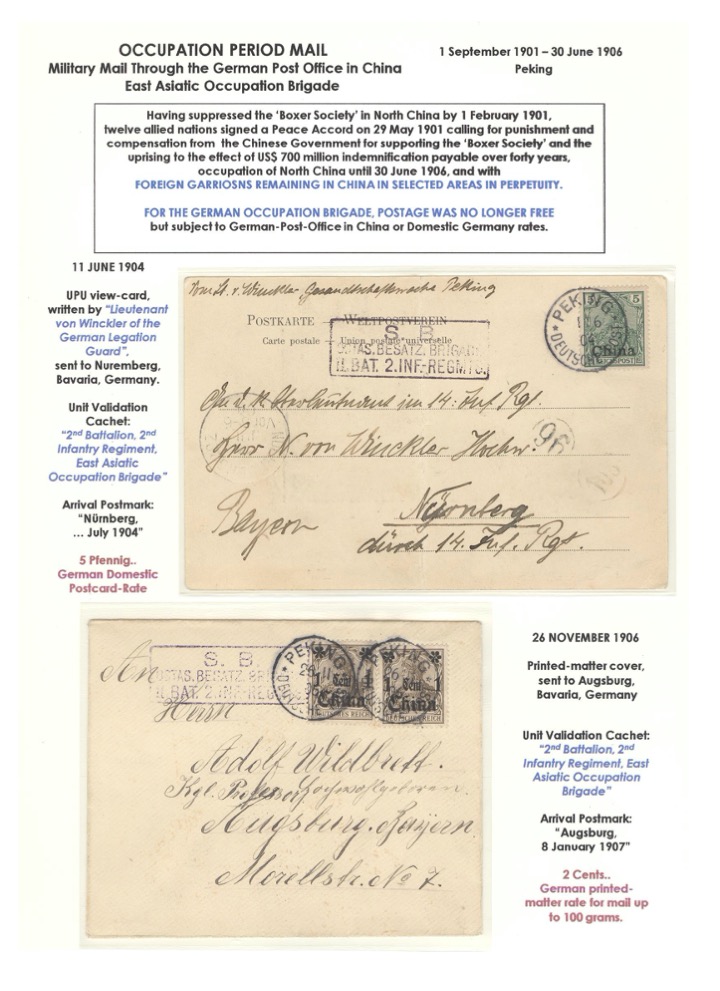 OCCUPATION PERIOD MAIL
1 September 1901 – 30 June 1906
Military Mail Through the German Post Office in China
Peking
East Asiatic Occupation Brigade
Having suppressed the 'Boxer Society' in North China by 1 February 1901,
twelve allied nations signed a Peace Accord on 29 May 1901 calling for punishment and
compensation from the Chinese Government for supporting the 'Boxer Society' and the
uprising to the effect of US$ 700 million indemnification payable over forty years,
occupation of North China until 30 June 1906, and with
FOREIGN GARRIOSNS REMAINING IN CHINA IN SELECTED AREAS IN PERPETUITY.
FOR THE GERMAN OCCUPATION BRIGADE, POSTAGE WAS NO LONGER FREE
but subject to German-Post-Office in China or Domestic Germany rates.
11 JUNE 1904
UPU view-card,
written by "Lieutenant
von Winckler of the
German Legation
Guard",
sent to Nuremberg,
Bavaria, Germany.
Unit Validation
Cachet:
"2nd Battalion, 2nd
Infantry Regiment,
East Asiatic
Occupation Brigade"
Arrival Postmark:
"Nürnberg,
... July 1904"
5 Pfennig..
German Domestic
Postcard-Rate
Vom Lt. v. Winckler Gesandtschaftswache Peking
POSTKARTE — WELTPOSTVEREIN
Carte postale — Union postale universelle
S. B.
OSTAS. BESATZ. BRIGADE
II. BAT. 2. INF.-REGMTS.
PEKING
11 6
04
DEUTSCHE POST
5
China
REICHSPOST
im 14. Inf. Rgt.
Herrn N. von Winckler Hochw.
96
Bayern
Nürnberg
durch 14. Inf. Rgt.
S. B.
OSTAS. BESATZ. BRI
II. BAT. 2. INF.-REG
PEKING
26 11
06
DEUTSCHE
1 Cent 1
China
DEUTSCHES REICH
PEKING
1 Cent 1
China
DEUTSCHES REICH
An
Herrn
Adolf Wildbrett.
Kgl. Professor Hochwohlgeboren.
Augsburg. Bayern
Morellstr. No 7.
26 NOVEMBER 1906
Printed-matter cover,
sent to Augsburg,
Bavaria, Germany
Unit Validation Cachet:
"2nd Battalion, 2nd
Infantry Regiment, East
Asiatic Occupation
Brigade"
Arrival Postmark:
"Augsburg,
8 January 1907"
2 Cents..
German printed-
matter rate for mail up
to 100 grams.